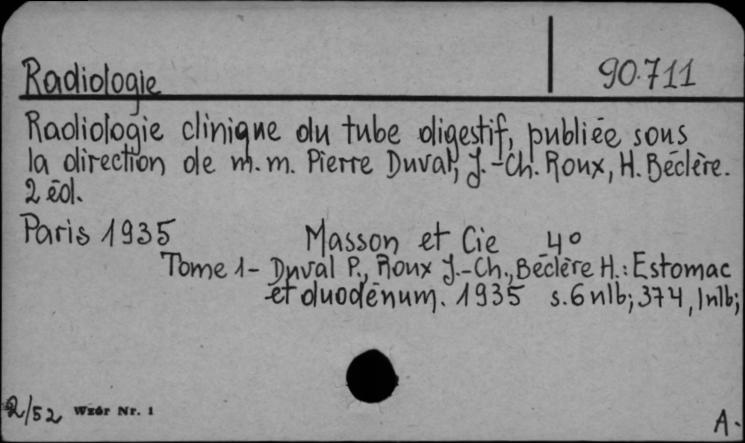 Radiologie 90.711
Radiologie clinique du tube digestif, publiée sous
la direction de m.m. Pierre Duval, J.-Ch. Roux, H. Béclère.
2 éd.
Paris 1935 Masson et Cie 4°
Tome 1- Duval P., Roux J.-Ch., Béclère H.: Estomac
et duodénum. 1935 s.6nlb; 374, 1nlb;
2/52 Wzór Nr. 1 A.